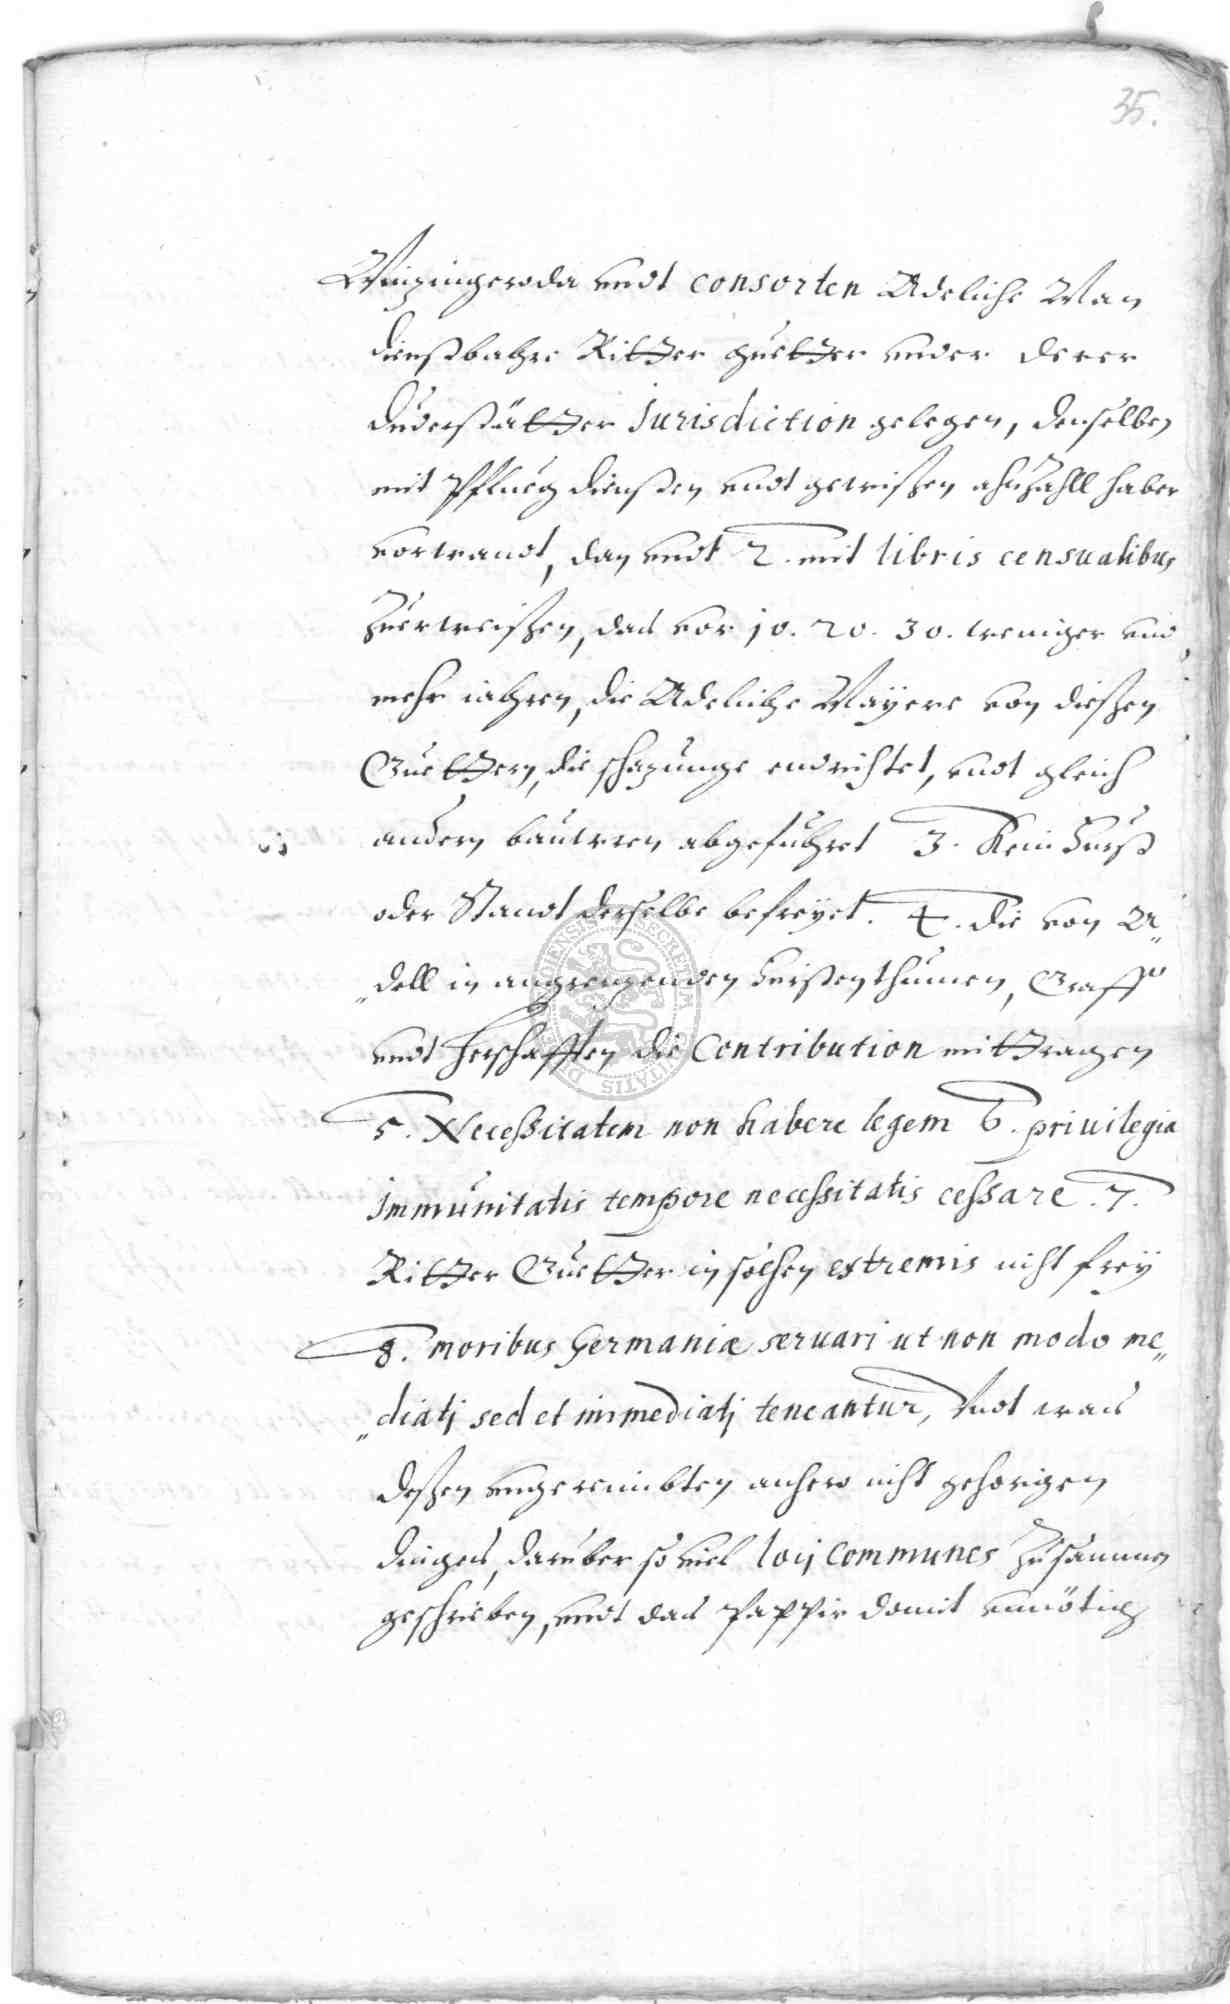 35.
Winzingeroda undt consorten Adeliche Man
dienstbahre Ritter guetter under derer
Duderstätter Jurisdiction gelegen, denselben
mit Pflueg diensten undt gewissen ahnzahll haber
vorwandt, dan undt 2. mit libris censualibus
zuerweissen, das vor 10. 20. 30. weniger und
mehr iahren, die Adeliche Mayere von diessen
Guettern, die schazunge endrichtet, undt gleich
andern bauwren abgefuhret 3. Kein Furst
oder Standt derselbe befreyet. 4. die von A„
„dell in angrenzenden Furstenthumen, Graff
undt Herschafften die Contribution mit tragen
5. Necessitatem non habere legem 6. privilegia
Immunitatis tempore necessitatis cessare. 7.
Ritter Guetter in solchen extremis nicht frey
8. moribus Germaniæ servari ut non modo me„
„diatj sed et immediatj teneantur, Undt was
dessen ungereimbten anhero nicht gehorigen
dinges, daruber so viel locj Communes zusammen
geschrieben, undt das Pappir domit unnötig